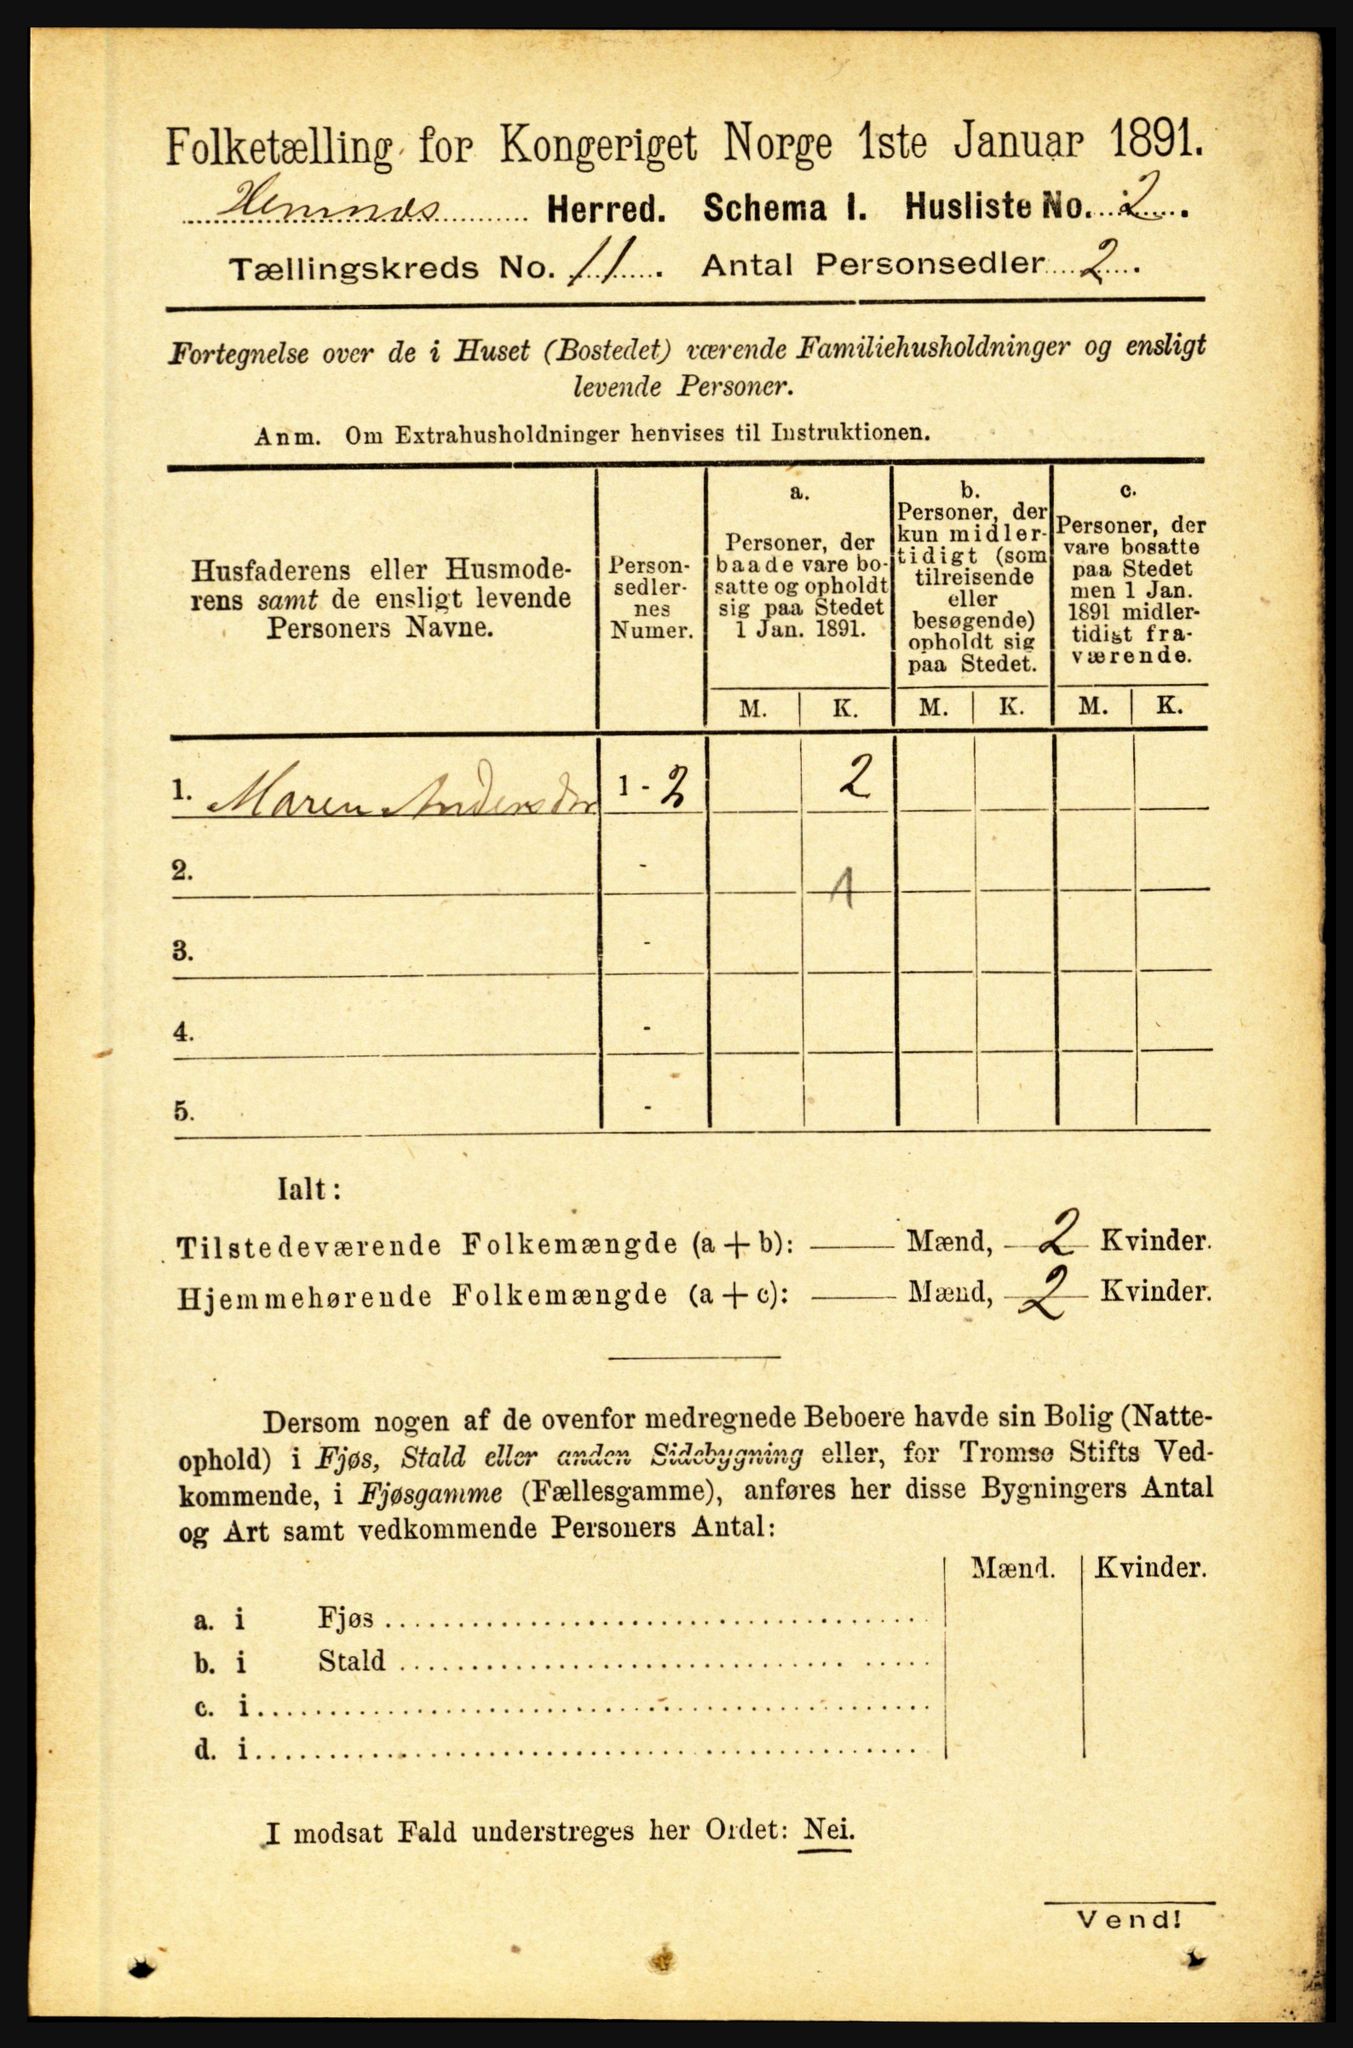 Folketælling for Kongeriget Norge 1ste Januar 1891.
Hemnæs Herred. Schema I. Husliste No. 2.
Tællingskreds No. 11. Antal Personsedler 2.
Fortegnelse over de i Huset (Bostedet) værende Familiehusholdninger og ensligt
levende Personer.
Anm. Om Extrahusholdninger henvises til Instruktionen.
Husfaderens eller Husmode-
rens samt de ensligt levende
Personers Navne.
Person-
sedler-
nes
Numer.
a.
Personer, der
baade vare bo-
satte og opholdt
sig paa Stedet
1 Jan. 1891.
b.
Personer, der
kun midler-
tidigt (som
tilreisende
eller
besøgende)
opholdt sig
paa Stedet.
c.
Personer, der
vare bosatte
paa Stedet
men 1 Jan.
1891 midler-
tidigt fra-
værende.
M. K. M. K. M. K.
1. Maren Andersdtr 1 - 2 2
2. - 1
3. -
4. -
5. -
Ialt:
Tilstedeværende Folkemængde (a + b): — Mænd, 2 Kvinder.
Hjemmehørende Folkemængde (a + c): — Mænd, 2 Kvinder.
Dersom nogen af de ovenfor medregnede Beboere havde sin Bolig (Natte-
ophold) i Fjøs, Stald eller anden Sidebygning eller, for Tromsø Stifts Ved-
kommende, i Fjøsgamme (Fællesgamme), anføres her disse Bygningers Antal
og Art samt vedkommende Personers Antal:
Mænd. Kvinder.
a. i Fjøs
b. i Stald
c. i
d. i
I modsat Fald understreges her Ordet: Nei.
Vend!